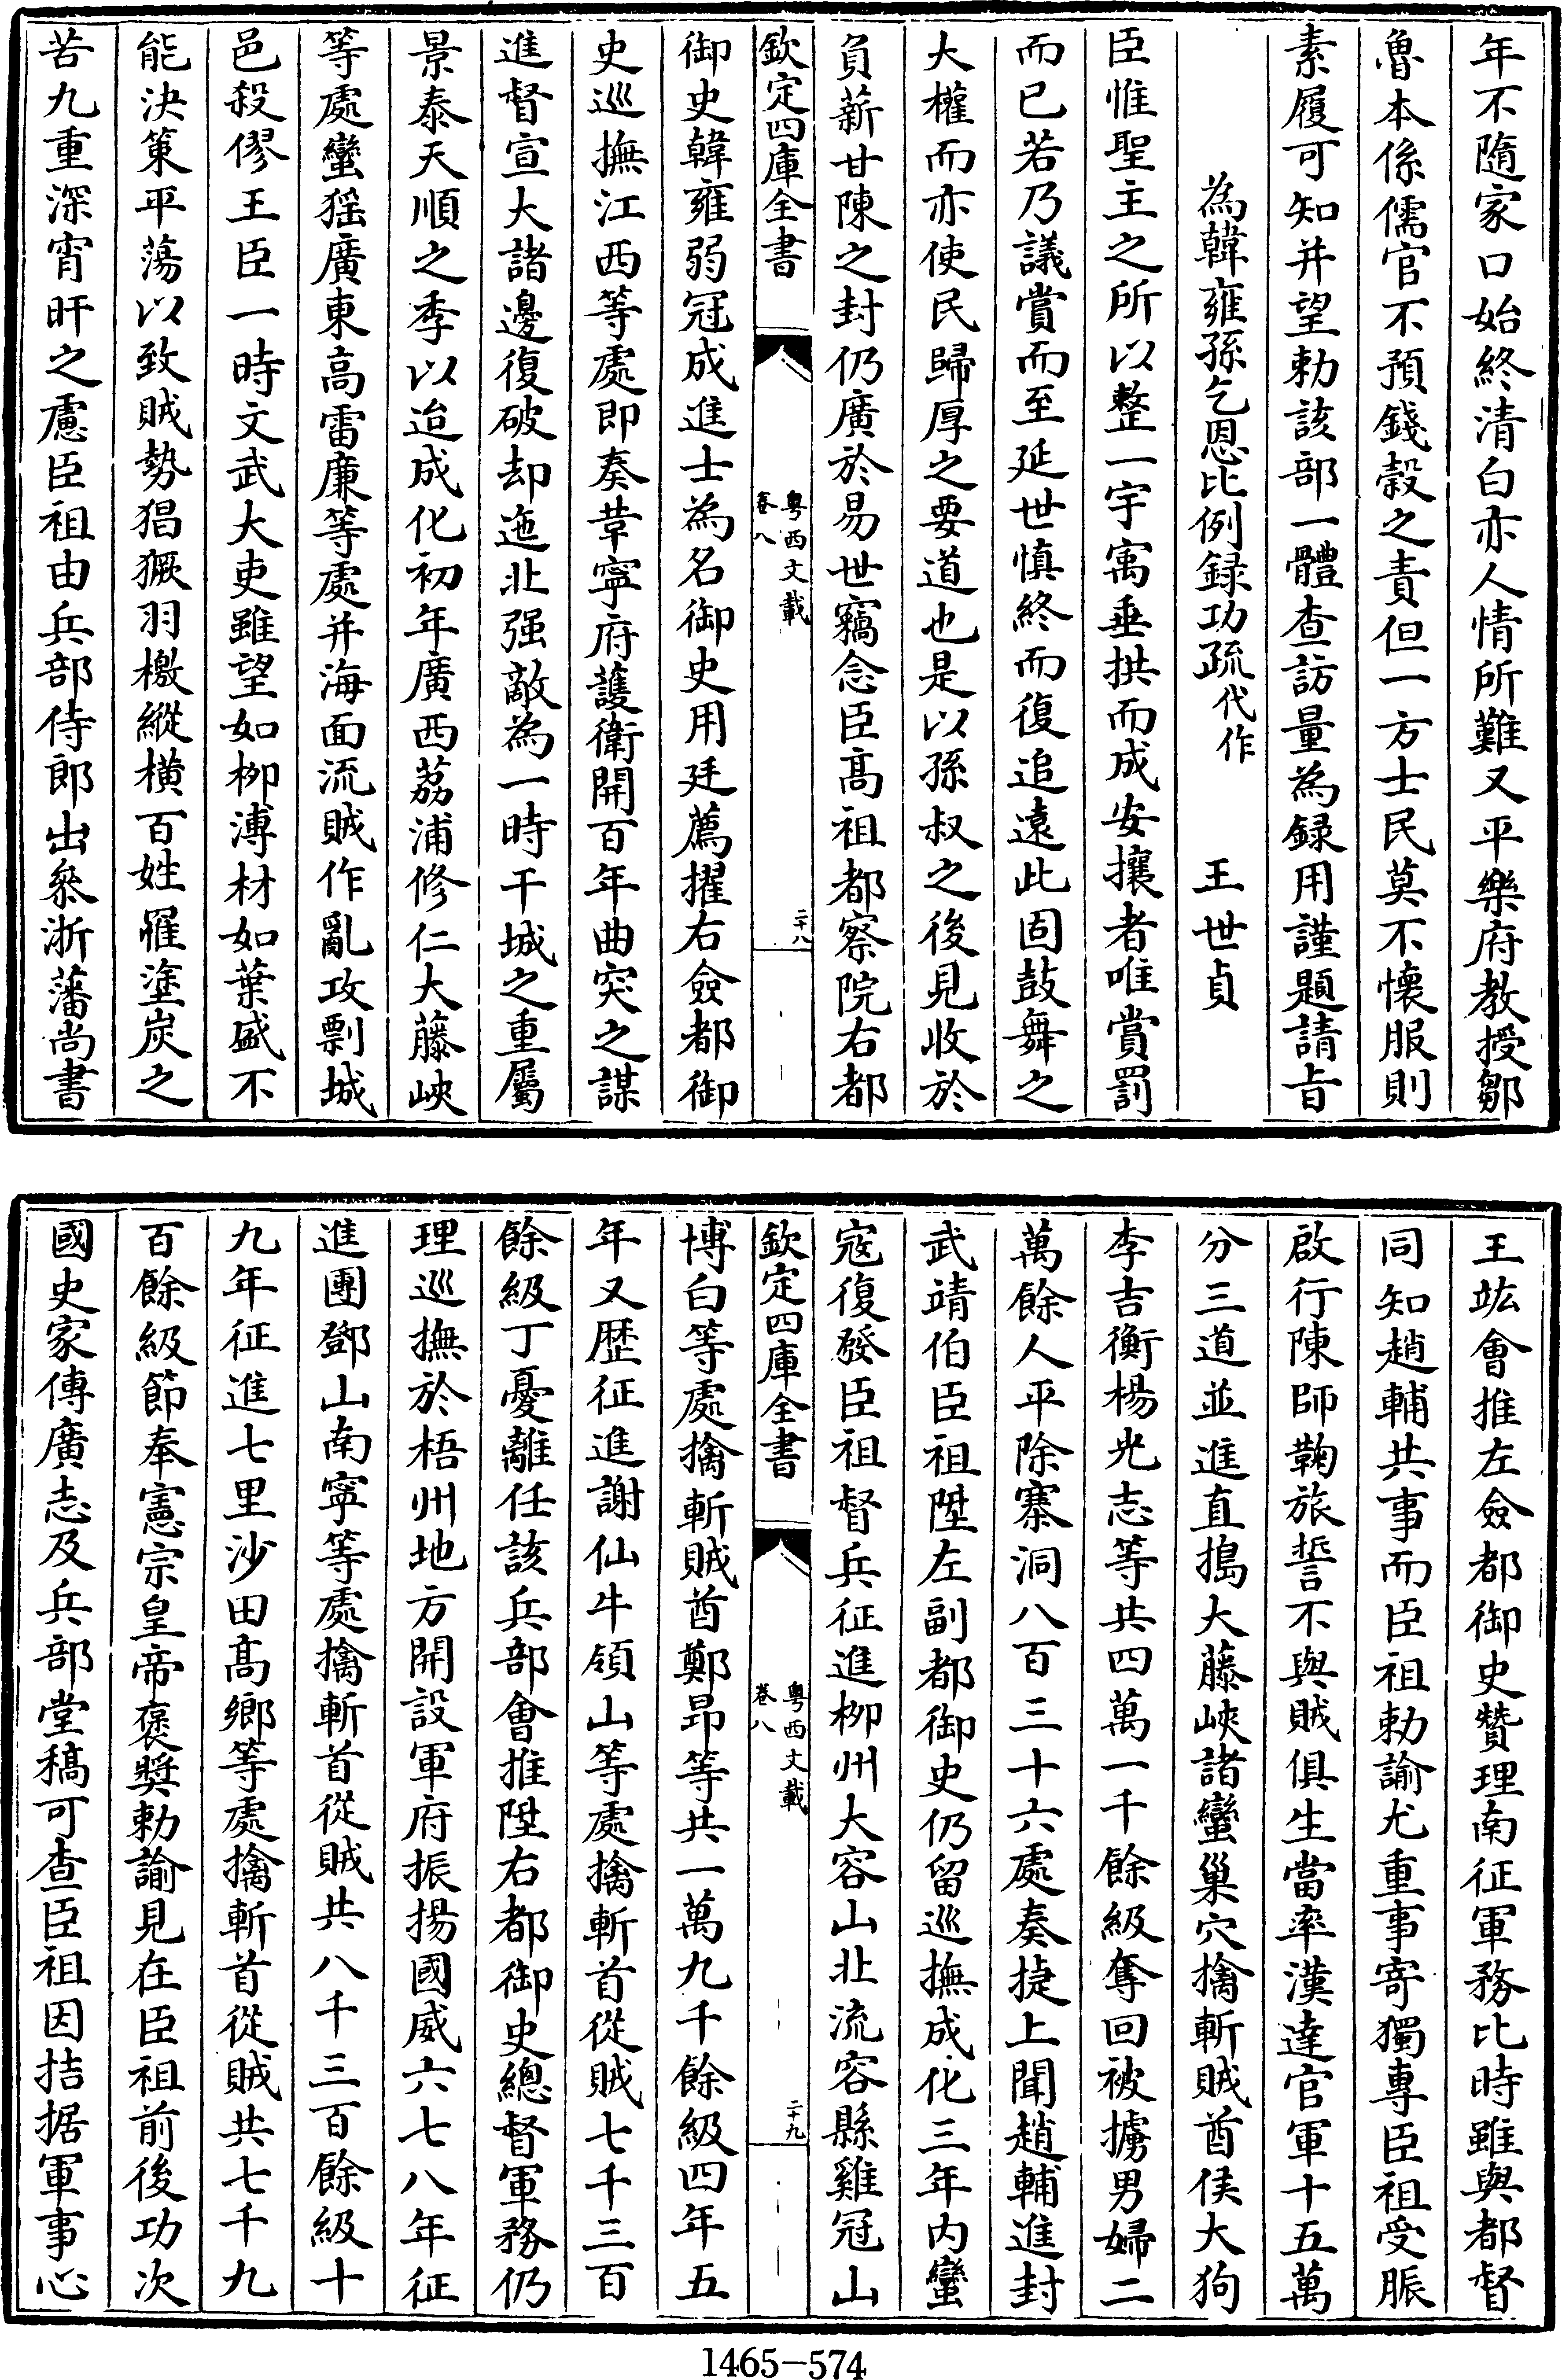 年不隨家口始終清白亦人情所難又平樂府教授鄒
魯本係儒官不預錢穀之責但一方士民莫不懷服則
素履可知并望勅該部一體查訪量為録用謹題請㫖
為韓雍孫乞恩比例録功疏代作　王世貞
臣惟聖主之所以整一宇寓垂拱而成安攘者唯賞罰
而已若乃議賞而至延世慎終而復追遠此固鼓舞之
大權而亦使民歸厚之要道也是以孫叔之後見收於
負薪甘陳之封仍廣於易世竊念臣髙祖都察院右都
欽定四庫全書
粤西文載
卷八
二十八
御史韓雍弱冠成進士為名御史用廷薦擢右僉都御
史巡撫江西等處即奏革寧府護衛開百年曲突之謀
進督宣大諸邊復破却迤北强敵為一時干城之重屬
景泰天順之季以迨成化初年廣西荔浦修仁大藤峽
等處蠻猺廣東高雷廉等處并海面流賊作亂攻剽城
邑殺僇王臣一時文武大吏雖望如栁溥材如葉盛不
能決策平蕩以致賊勢猖獗羽檄縱橫百姓罹塗炭之
苦九重深宵旰之慮臣祖由兵部侍郎出叅浙藩尚書
王竑會推左僉都御史贊理南征軍務比時雖與都督
同知趙輔共事而臣祖勅諭尤重事寄獨專臣祖受脤
啟行陳師鞠旅誓不與賊俱生當率漢達官軍十五萬
分三道並進直搗大藤峽諸蠻巢穴擒斬賊酋侯大狗
李吉衡楊光志等共四萬一千餘級奪回被擄男婦二
萬餘人平除寨洞八百三十六處奏捷上聞趙輔進封
武靖伯臣祖陞左副都御史仍留巡撫成化三年内蠻
寇復發臣祖督兵征進栁州大容山北流容縣雞冠山
欽定四庫全書
粤西文載
卷八
二十九
博白等處擒斬賊酋鄭昻等共一萬九千餘級四年五
年又歴征進謝仙牛領山等處擒斬首從賊七千三百
餘級丁憂離任該兵部會推陞右都御史總督軍務仍
理巡撫於梧州地方開設軍府振揚國威六七八年征
進團鄧山南寧等處擒斬首從賊共八千三百餘級十
九年征進七里沙田髙鄉等處擒斬首從賊共七千九
百餘級節奉憲宗皇帝褒奬勅諭見在臣祖前後功次
國史家傳廣志及兵部堂稿可查臣祖因拮据軍事心
1465－574